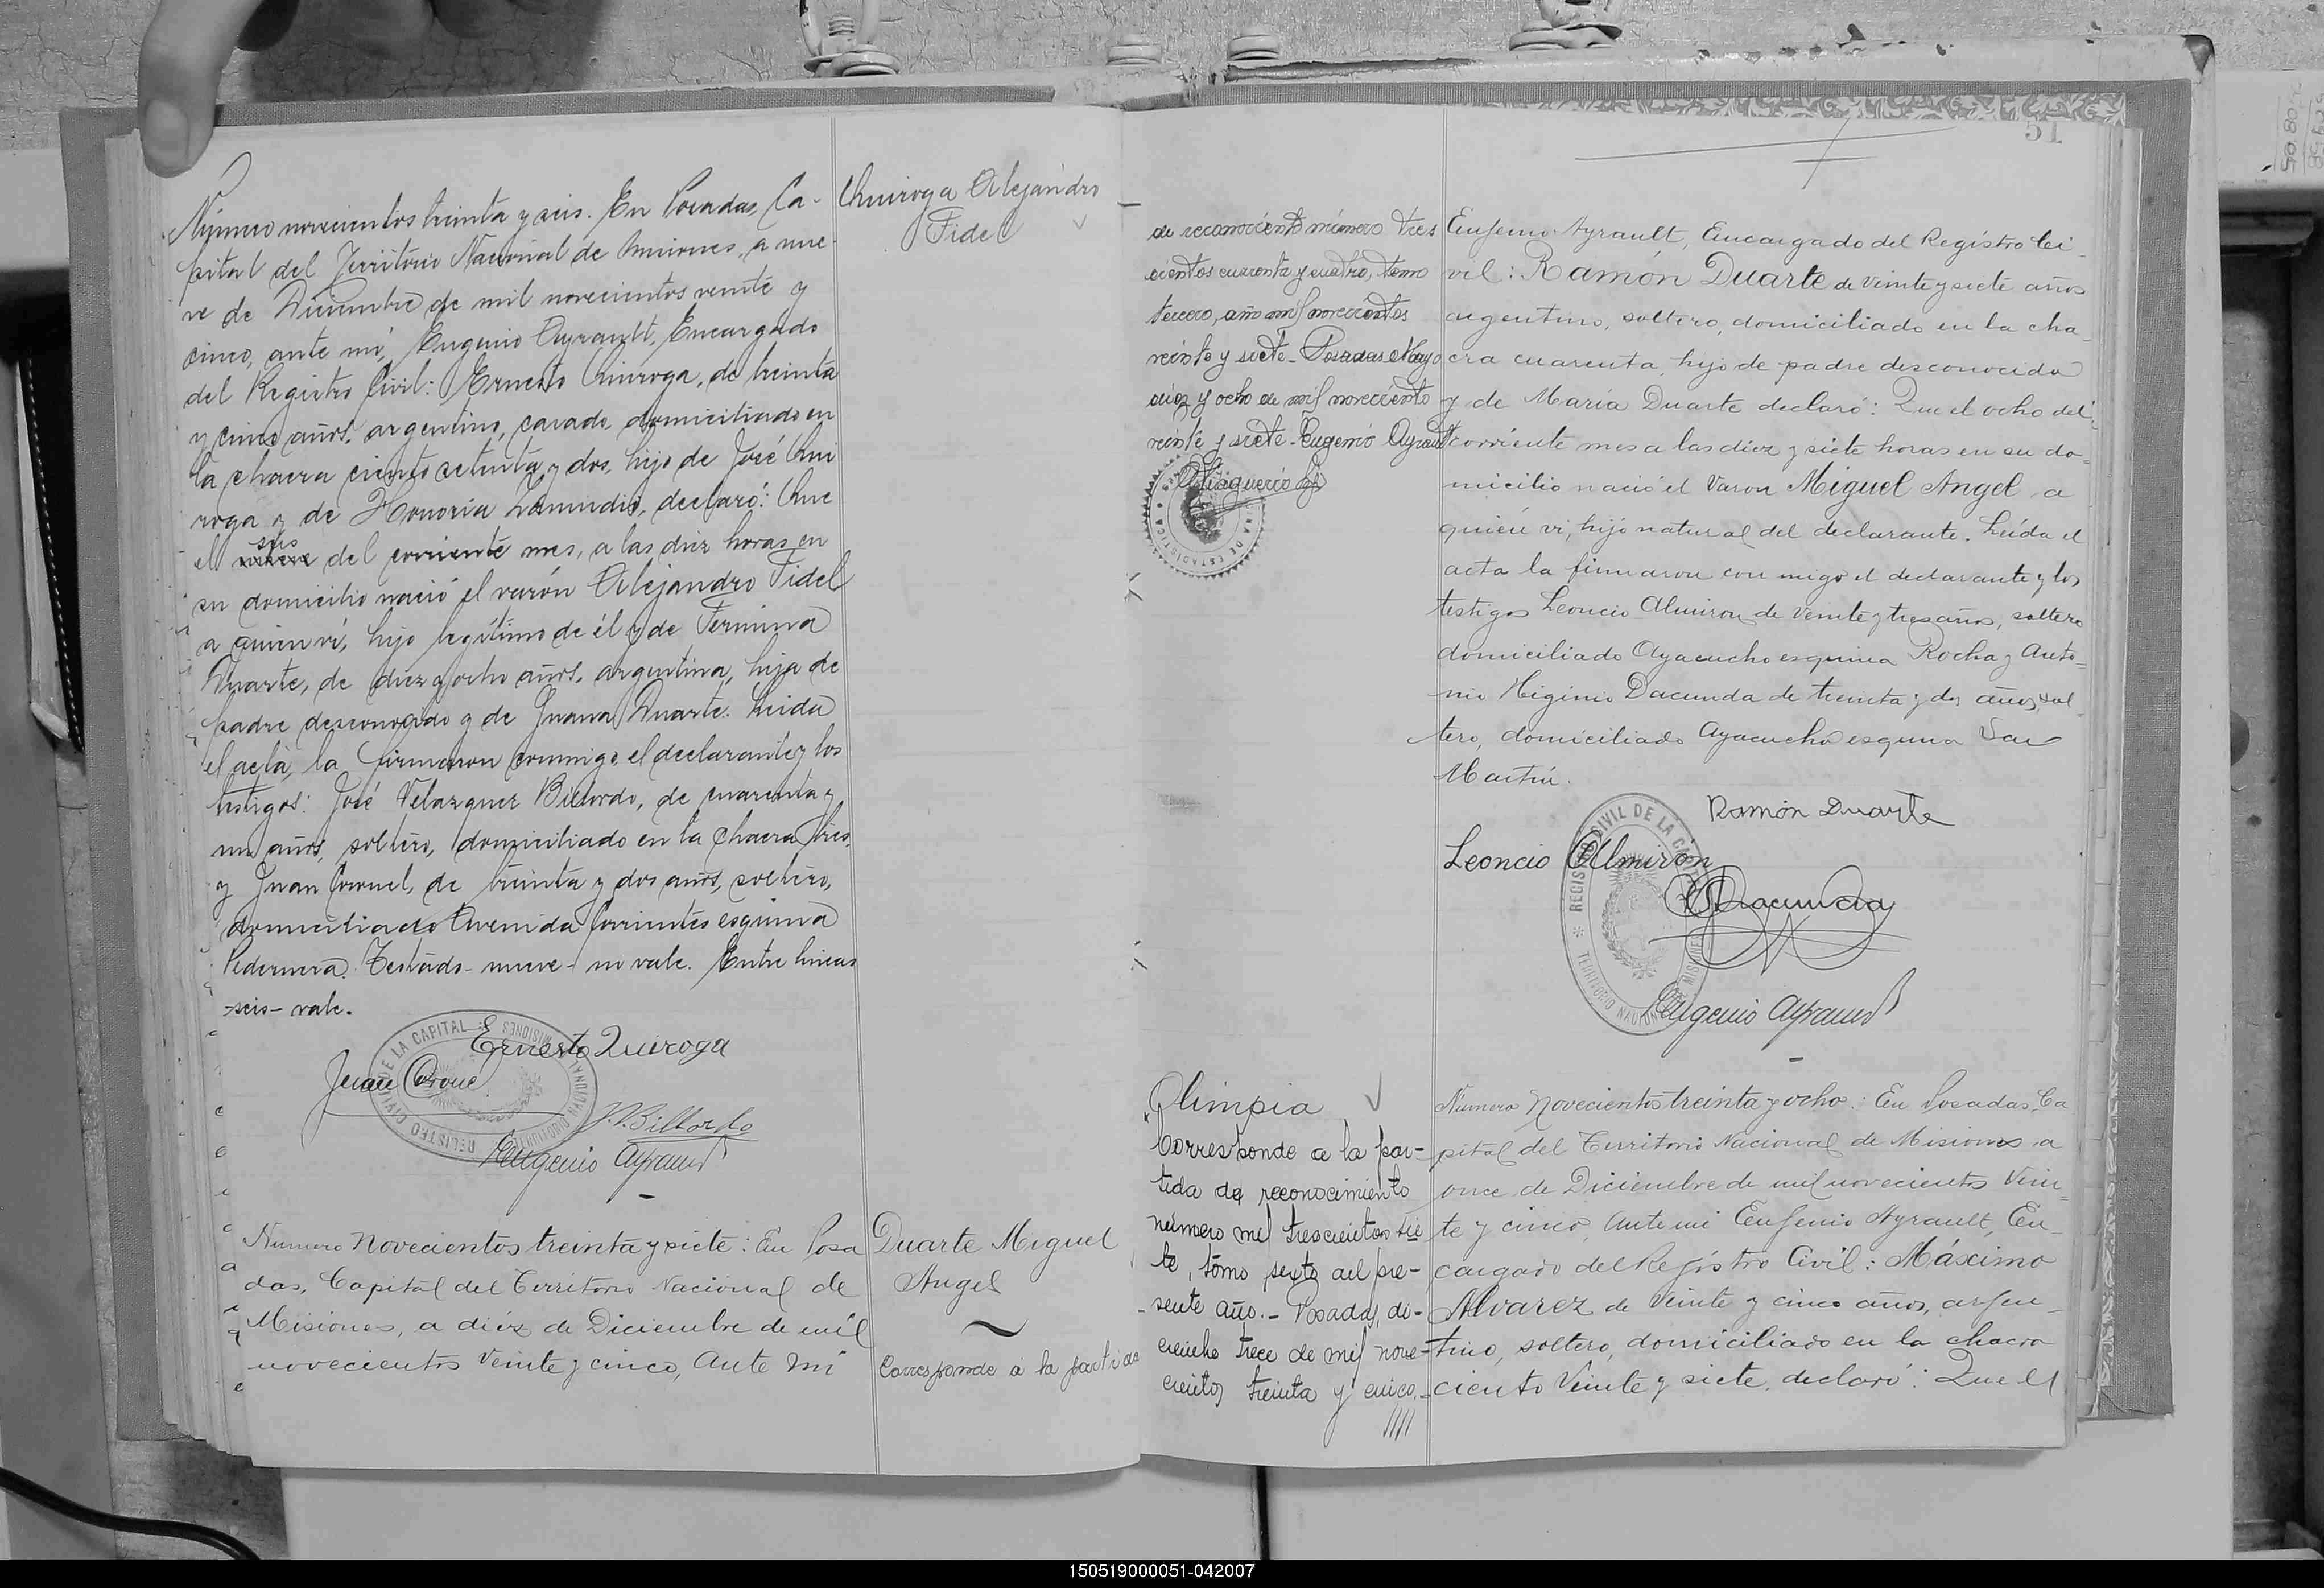 Número novecientos treinta y seis. En Posadas, Ca-
pital del Territorio Nacional de Misiones, a nue-
ve de Diciembre de mil novecientos veinte y
cinco, ante mí, Eugenio Ayrault, Encargado
del Registro Civil: Ernesto Quiroga, de treinta
y cinco años, argentino, casado, domiciliado en
la chacra ciento setenta y dos, hijo de José Qui
roga y de Honoria, declaró: Que
seis
el nueve del corriente mes, a las diez horas en
su domicilio nació el varón Alejandro Fidel
a quien ví, hijo legítimo de él y de Fermina
Duarte, de diez y ocho años, argentina, hija de
padre desconocido y de Juana Duarte. Leida
el acta, la firmaron conmigo el declarante y los
testigos: José Velazquez Billordo, de cuarenta y
un años, soltero, domiciliado en la chacra tres,
y Juan Coronel, de treinta y dos años, soltero,
domiciliado Avenida Corrientes esquina
Pedernera. Testado - nueve - no vale. Entre lineas
-seis- vale.
Quiroga Alejandro
Fidel
Ernesto Quiroga
Juan Coronel
J.V. Billordo
Eugenio Ayrault
REGISTRO CIVIL DE LA CAPITAL
MISIONES
Numero Novecientos treinta y siete: En Posa
das, Capital del Territorio Nacional de
Misiones, a diez de Diciembre de mil
novecientos Veinte y cinco, Ante mi
Duarte Miguel
Angel
Corresponde a la partida
51
de reconocimiento número Tres
cientos cuarenta y cuatro, tomo
tercero, año mil novecientos
veinte y siete - Posadas Mayo
diez y ocho de mil novecientos
veinte y siete - Eugenio Ayrault
DE ESTADISTICA
Eugenio Ayrault, Encargado del Registro Ci
vil: Ramón Duarte de veinte y siete años
argentino, soltero, domiciliado en la cha
cra cuarenta, hijo de padre desconocido
y de María Duarte declaró: Que el ocho del
corriente mes a las diez y siete horas en su do-
micilio nació el Varon Miguel Angel, a
quien vi, hijo natural del declarante. Leída el
acta la firmaron con migo el declarante y los
testigos Leoncio Almiron de veinte y tres años, soltero
domiciliado Ayacucho esquina Rocha y Anto-
nio Higinio Dacunda de treinta y dos años, sol
tero, domiciliado Ayacucho esquina San
Martin.
Ramón Duarte
Leoncio Almirón
Dacunda
Eugenio Ayrault
REGISTRO CIVIL DE LA CAPITAL
TERRITORIO NACIONAL DE MISIONES
Olimpia
Corresponde a la par-
tida de reconocimiento
número mil trescientos sie
te, tomo sexto del pre-
sente año. - Posadas, di-
ciembre trece de mil nove-
cientos treinta y cinco.-
Numero Novecientos treinta y ocho: En Posadas, Ca
pital del Territorio Nacional de Misiones a
once de Diciembre de mil novecientos Vein-
te y cinco, Ante mi Eugenio Ayrault, En-
cargado del Registro Civil: Máximo
Alvarez de Veinte y cinco años, argen-
tino, soltero, domiciliado en la chacra
ciento Veinte y siete, declaró: Que el
150519000051-042007